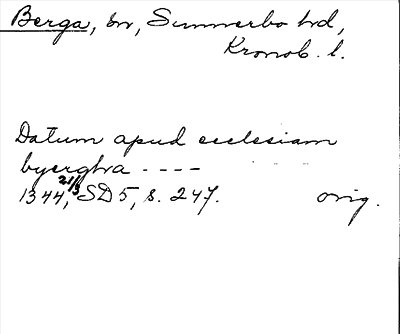 Berga, sn, Sunnerbo hd,
Kronob. l.
Datum apud ecclesiam
byerghra ----
1344, 21/3 SD 5, s. 247. orig.